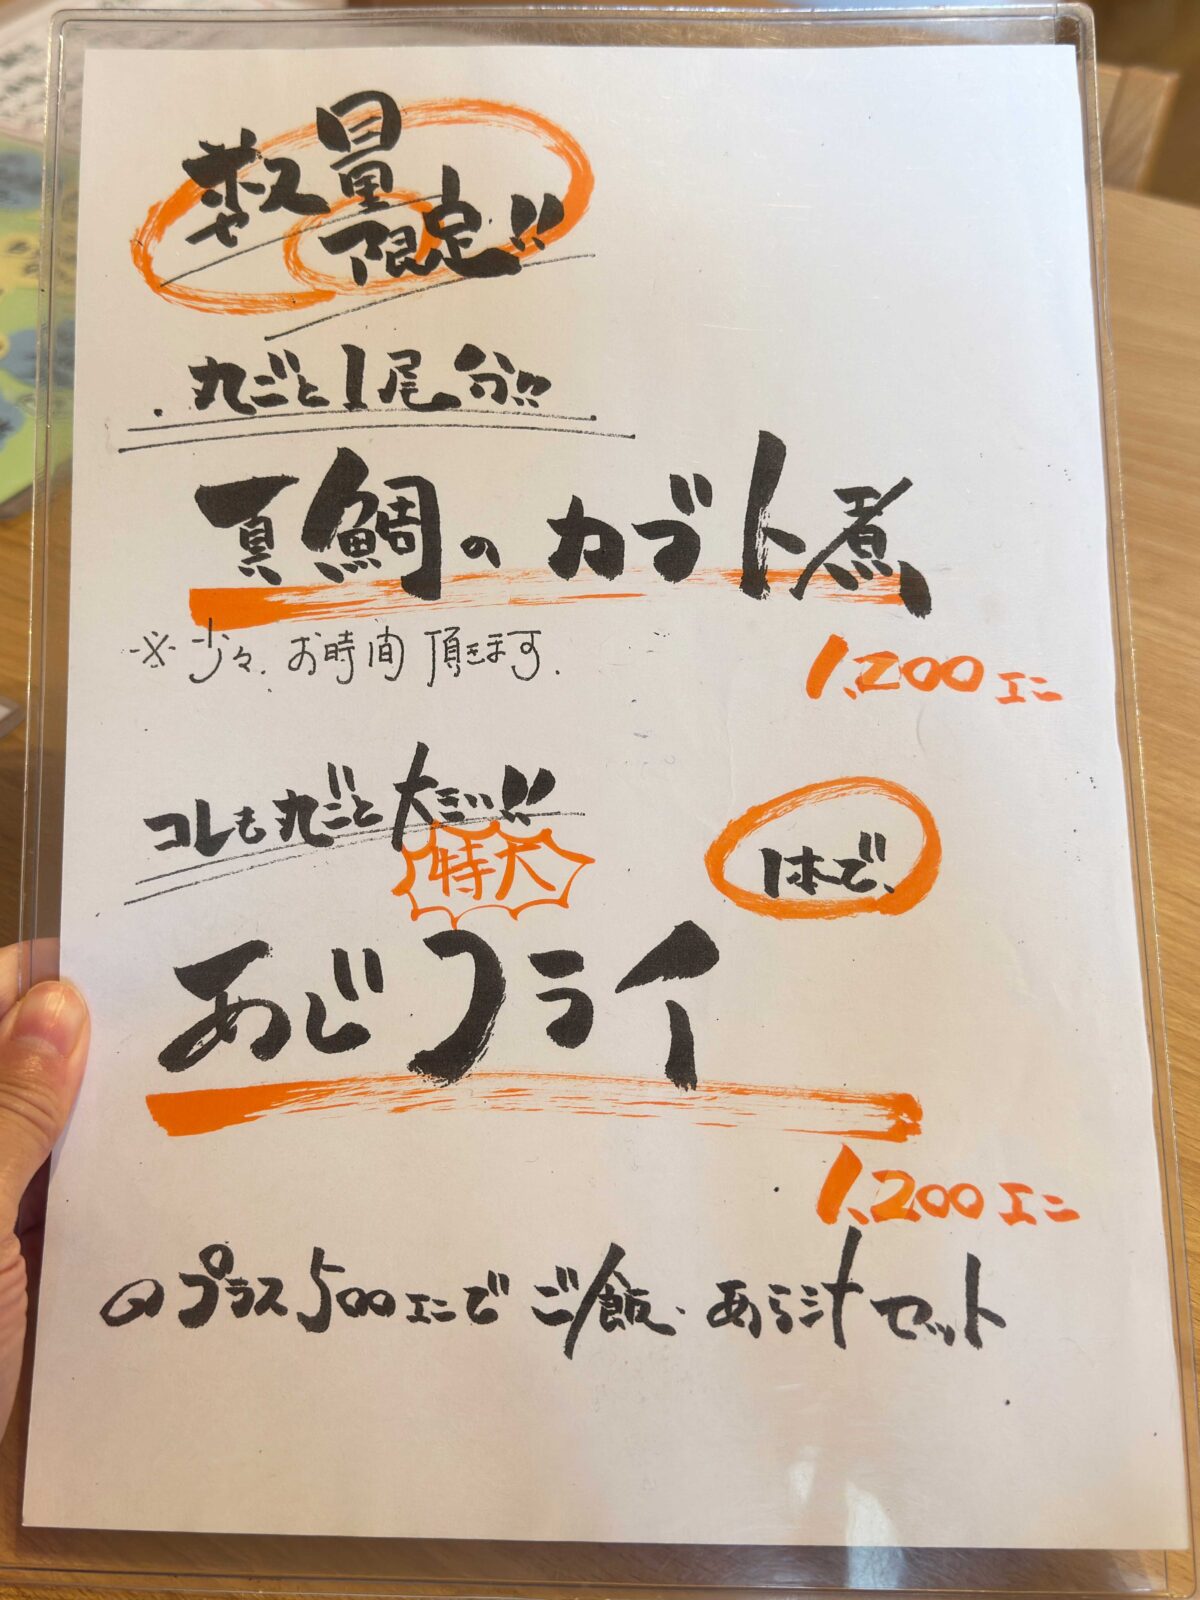 数量
限定!!
丸ごと1尾分!!
真鯛のカブト煮
※少々、お時間頂きます。
1,200エン
コレも丸ごと大きい!!
特大
1本で、
あじフライ
1,200エン
プラス500エンでご飯・あら汁セット